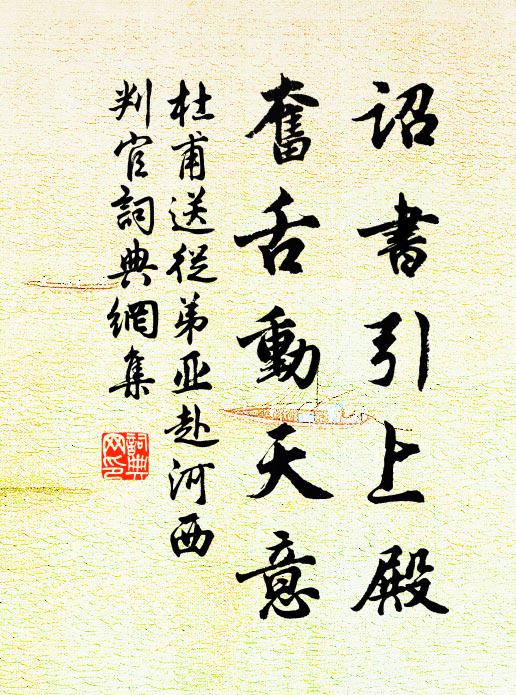 詔書引上殿
奮舌動天意
杜甫送從弟亚赴河西
判官詞典網集
詞典网印